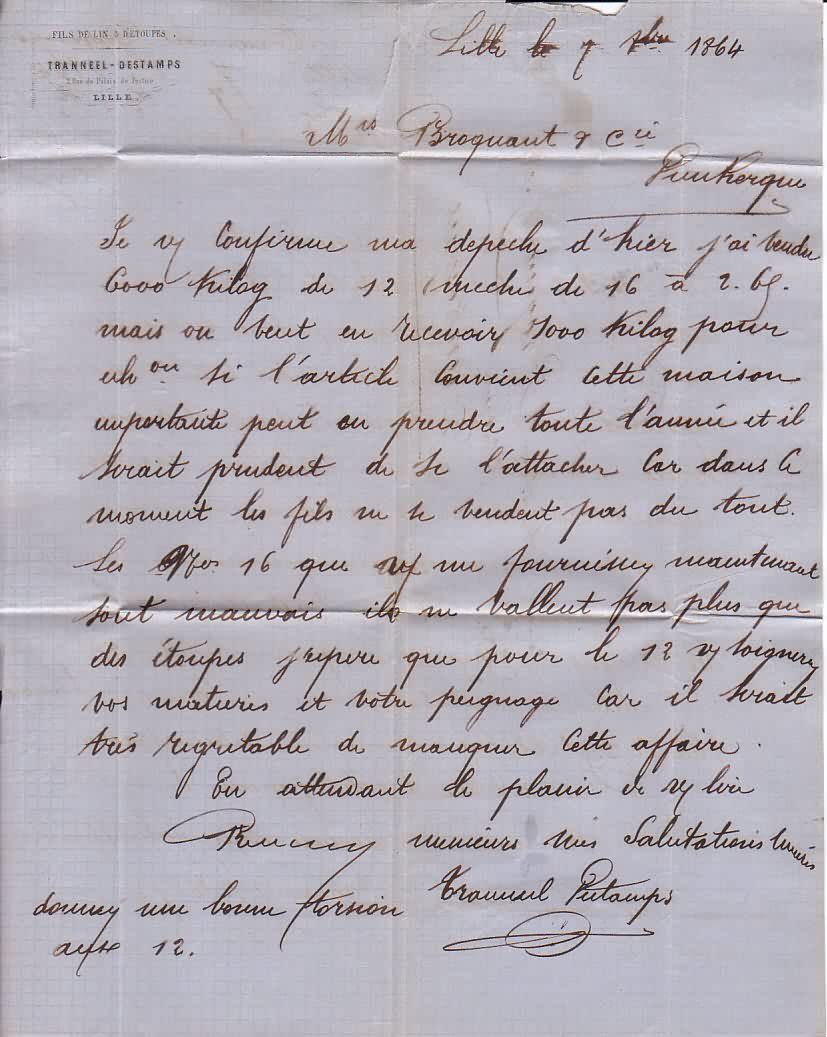 FILS DE LIN & D'ÉTOUPES.
TRANNEEL-DESTAMPS
2 Rue du Palais de Justice
LILLE
Lille le 7 1864
Mrs Broquant & Cie
Dunkerque
Je vs Confirme ma depeche d'hier j'ai vendu
6000 Kilog de 12 meche de 16 à 2.65.
mais on veut en recevoir 1000 Kilog pour
si l'article Convient Cette maison
importante peut en prendre toute l'année et il
serait prudent de se l'attacher Car dans Ce
moment les fils ne se vendent pas du tout.
Les Nos 16 que vs me fournissez maintenant
sont mauvais ils ne vallent pas plus que
des étoupes j'espere que pour le 12 vs soignerez
vos matieres et votre peignage Car il serait
très regretable de manquer Cette affaire.
En attendant le plaisir de vs lire
Recevez messieurs mes Salutations sincères
Tranneel Destamps
donnez une bonne torsion
aux 12.